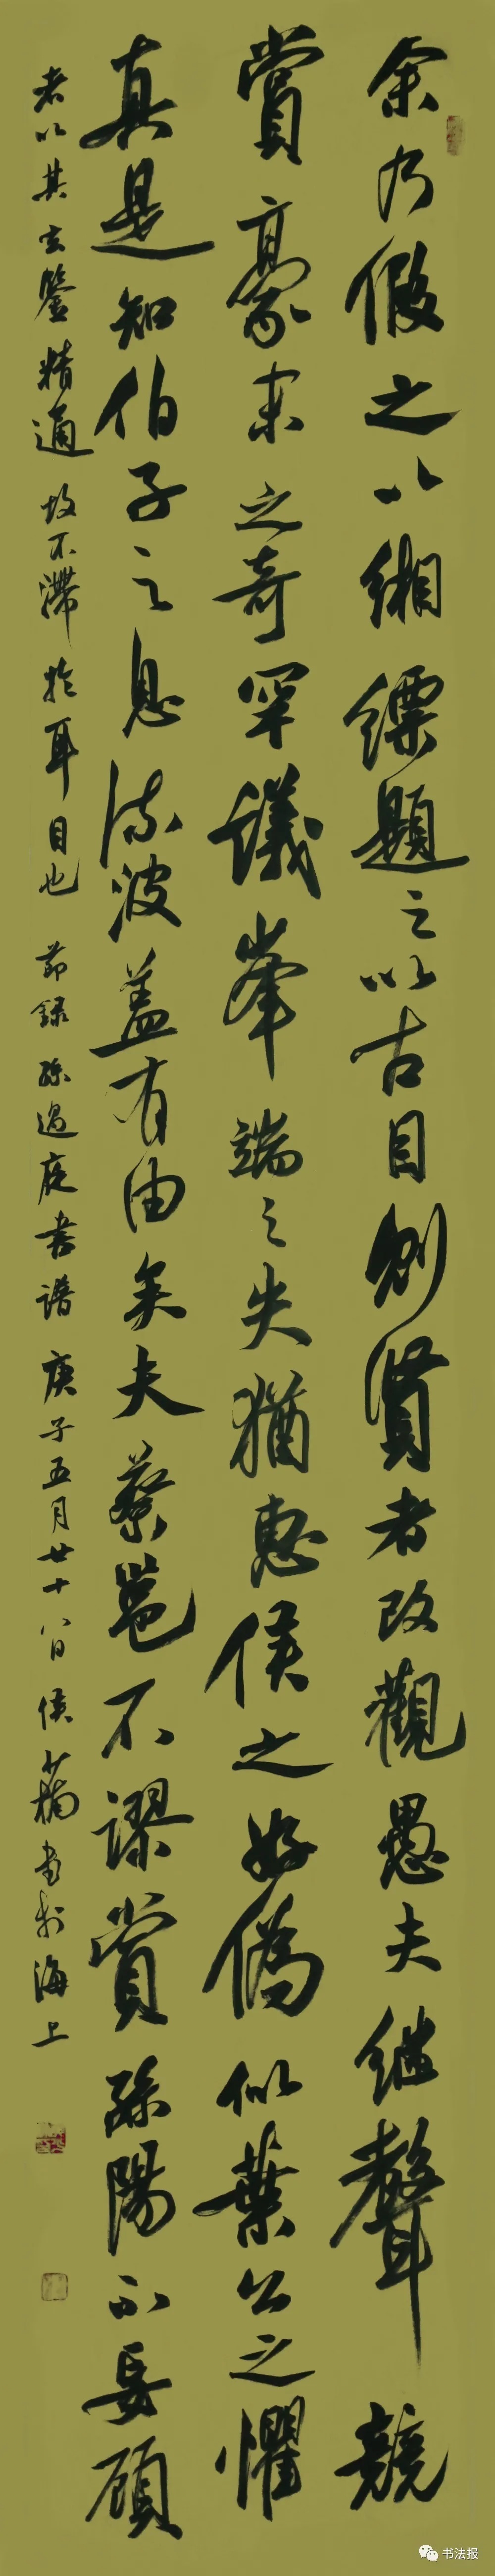 余乃假之以緗縹題之以古目則賢者改觀愚夫继聲競
賞豪末之奇罕議峯端之失猶惠侯之好偽似葉公之懼
真是知伯子之息流波蓋有由矣夫蔡邕不謬賞孫陽不妄顧
者以其玄鑒精通故不滯於耳目也 節録孫過庭書譜 庚子五月廿十八日 侯少書於海上
书法报